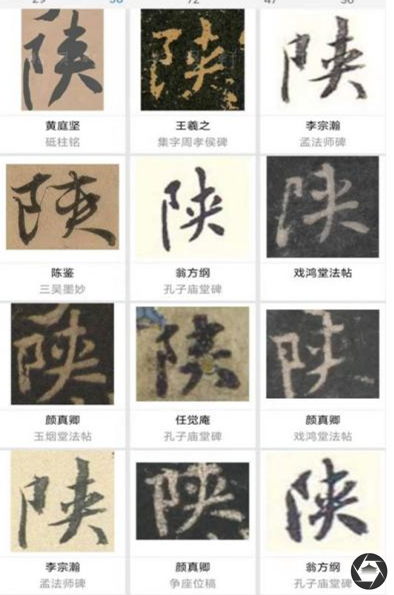 72 47
陕 陕 陕
黄庭坚 王羲之 李宗瀚
砥柱铭 集字周孝侯碑 孟法师碑
陕 陕 陕
陈鉴 翁方纲 戏鸿堂法帖
三吴墨妙 孔子庙堂碑
陕 陕 陕
颜真卿 任觉庵 颜真卿
玉烟堂法帖 孔子庙堂碑 戏鸿堂法帖
陕 陕 陕
李宗瀚 颜真卿 翁方纲
孟法师碑 争座位稿 孔子庙堂碑